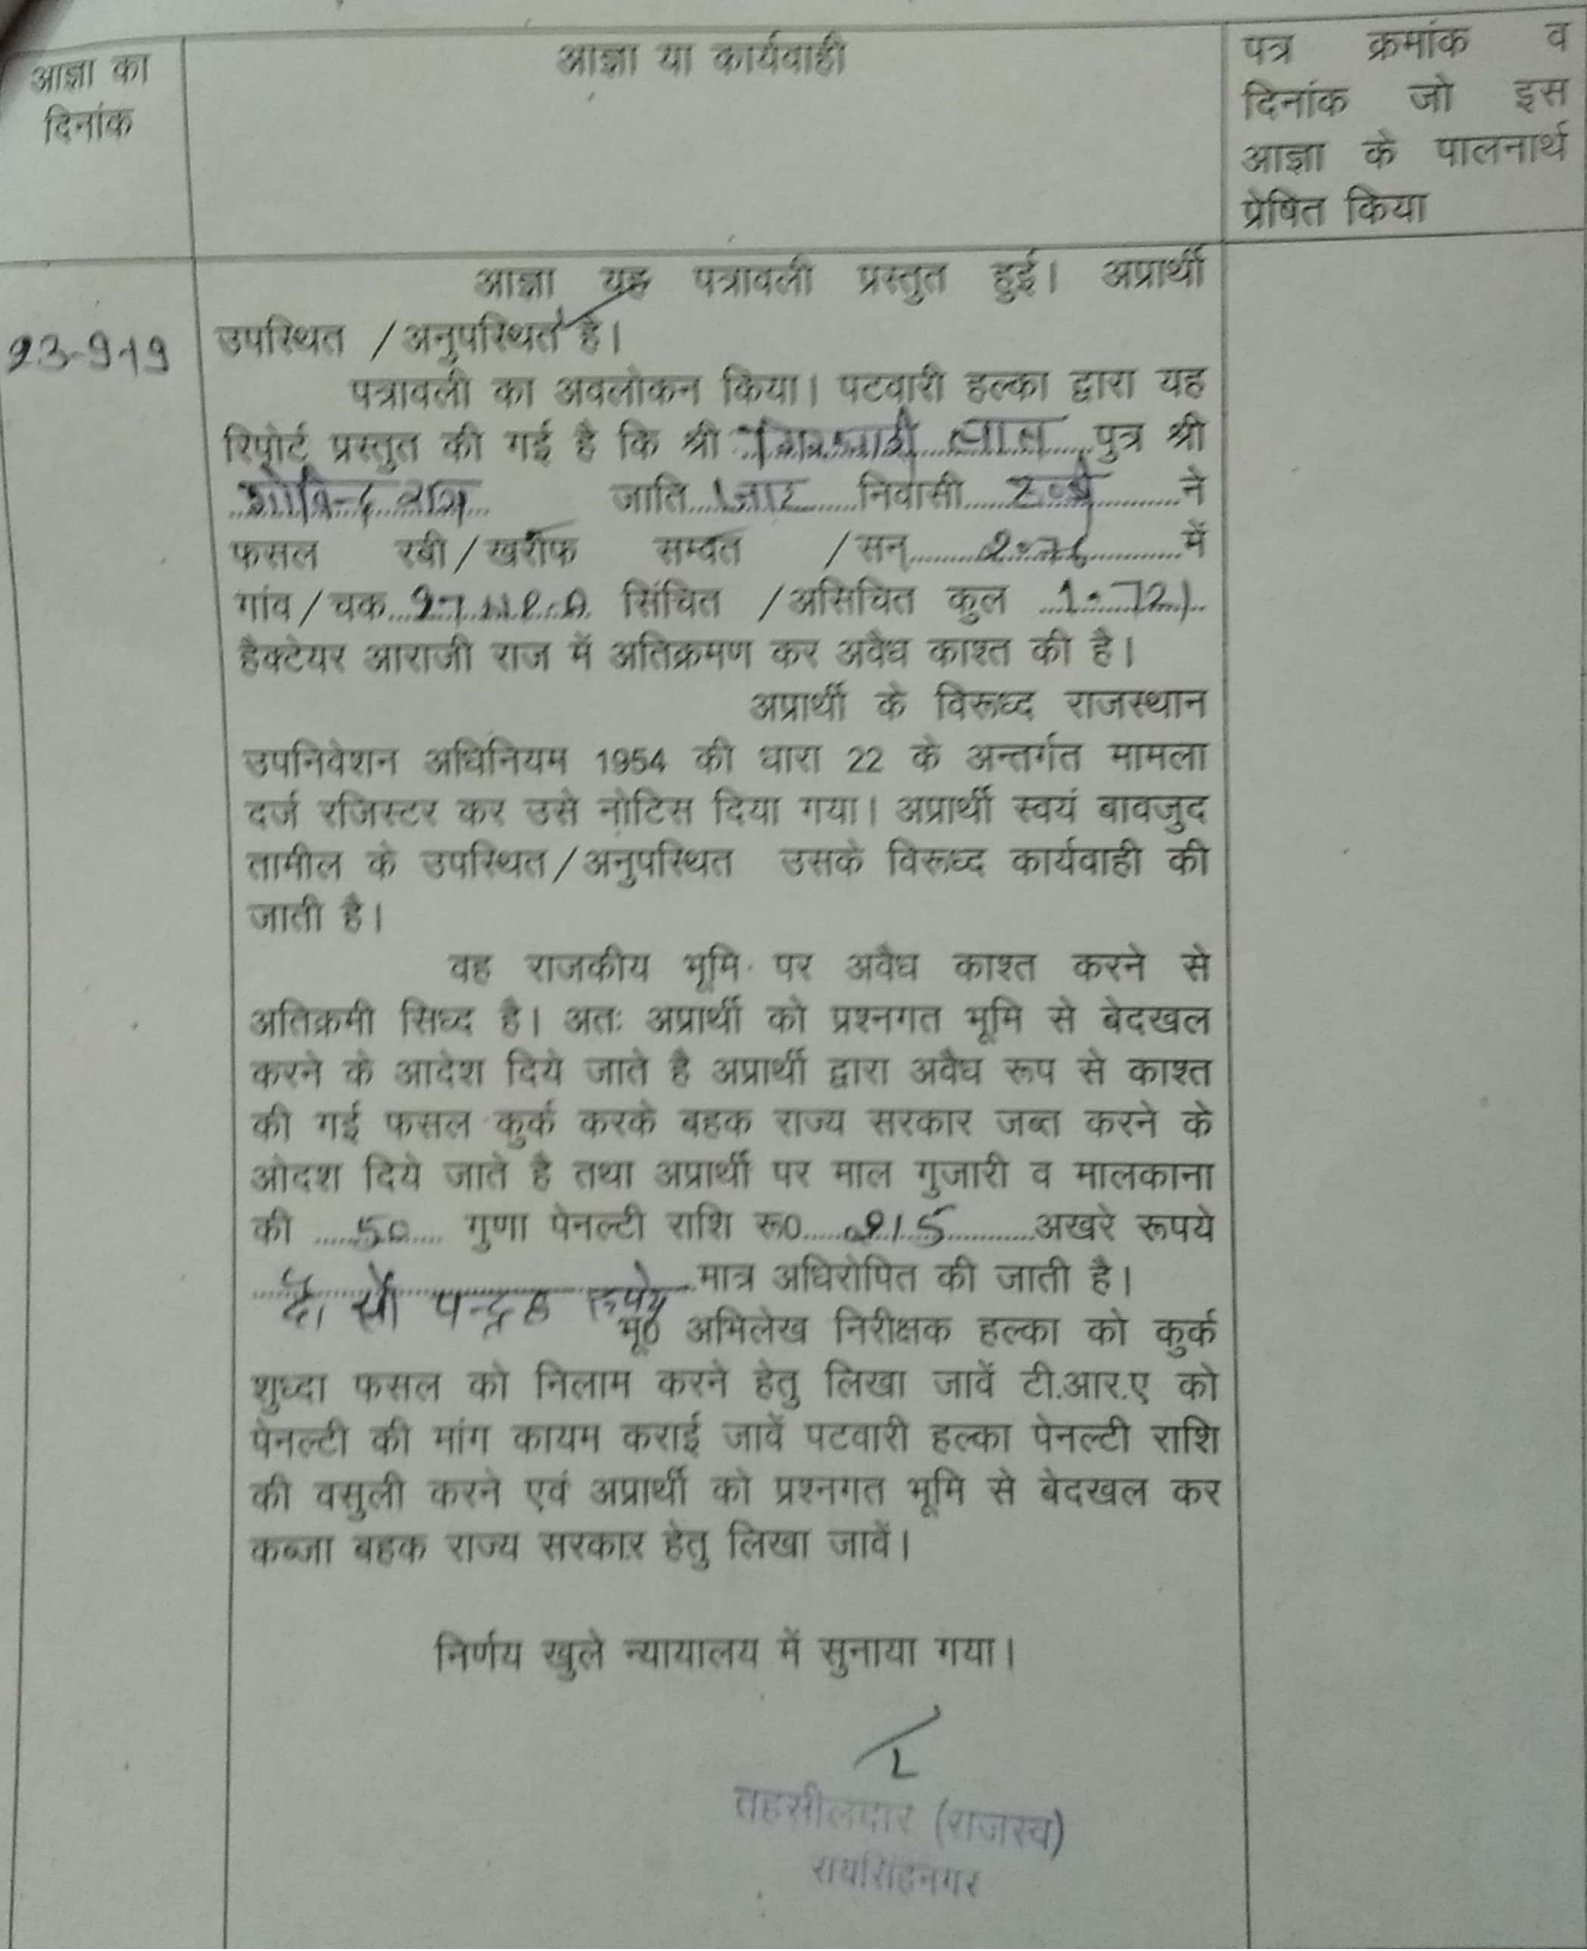 आज्ञा का
दिनांक
आज्ञा या कार्यवाही
पत्र क्रमांक व
दिनांक जो इस
आज्ञा के पालनार्थ
प्रेषित किया
आज्ञा यह पत्रावली प्रस्तुत हुई। अप्रार्थी
उपस्थित /अनुपस्थित है।
पत्रावली का अवलोकन किया। पटवारी हल्का द्वारा यह
रिपोर्ट प्रस्तुत की गई है कि श्री लाल पुत्र श्री
जाति निवासी ने
फसल रबी/खरीफ सम्वत /सन् में
गांव/चक सिंचित /असिचित कुल 1.721
हैक्टेयर आराजी राज में अतिक्रमण कर अवैध काश्त की है।
अप्रार्थी के विरूध्द राजस्थान
उपनिवेशन अधिनियम 1954 की धारा 22 के अन्तर्गत मामला
दर्ज रजिस्टर कर उसे नोटिस दिया गया। अप्रार्थी स्वयं बावजुद
तामील के उपस्थित/अनुपस्थित उसके विरूध्द कार्यवाही की
जाती है।
वह राजकीय भूमि पर अवैध काश्त करने से
अतिक्रमी सिध्द है। अतः अप्रार्थी को प्रश्नगत भूमि से बेदखल
करने के आदेश दिये जाते है अप्रार्थी द्वारा अवैध रूप से काश्त
की गई फसल कुर्क करके बहक राज्य सरकार जब्त करने के
ओदश दिये जाते है तथा अप्रार्थी पर माल गुजारी व मालकाना
की 50 गुणा पेनल्टी राशि रू0 215 अखरे रूपये
दो सौ पन्द्रह रूपये मात्र अधिरोपित की जाती है।
भू0 अभिलेख निरीक्षक हल्का को कुर्क
शुध्दा फसल को निलाम करने हेतु लिखा जावें टी.आर.ए को
पेनल्टी की मांग कायम कराई जावें पटवारी हल्का पेनल्टी राशि
की वसुली करने एवं अप्रार्थी को प्रश्नगत भूमि से बेदखल कर
कब्जा बहक राज्य सरकार हेतु लिखा जावें।
निर्णय खुले न्यायालय में सुनाया गया।
तहसीलदार (राजस्व)
रायसिंहनगर